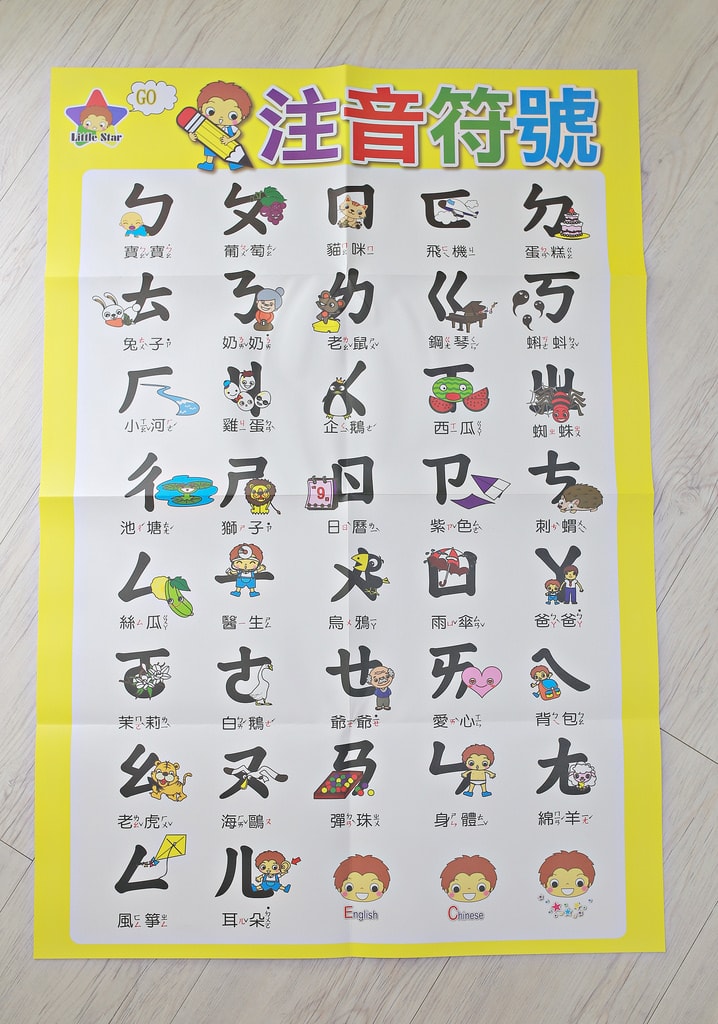 GO
Little Star
注音符號
ㄅ ㄆ ㄇ ㄈ ㄉ
寶寶 葡萄 貓咪 飛機 蛋糕
ㄊ ㄋ ㄌ ㄍ ㄎ
兔子 奶奶 老鼠 鋼琴 蝌蚪
ㄏ ㄐ ㄑ ㄒ ㄓ
小河 雞蛋 企鵝 西瓜 蜘蛛
ㄔ ㄕ 9 ㄖ ㄗ ㄘ
池塘 獅子 日曆 紫色 刺蝟
ㄙ ㄧ ㄨ ㄩ ㄚ
絲瓜 醫生 烏鴉 雨傘 爸爸
ㄛ ㄜ ㄝ ㄞ ㄟ
茉莉 白鵝 爺爺 愛心 背包
ㄠ ㄡ ㄢ ㄣ ㄤ
老虎 海鷗 彈珠 身體 綿羊
ㄥ ㄦ
風箏 耳朵 English Chinese